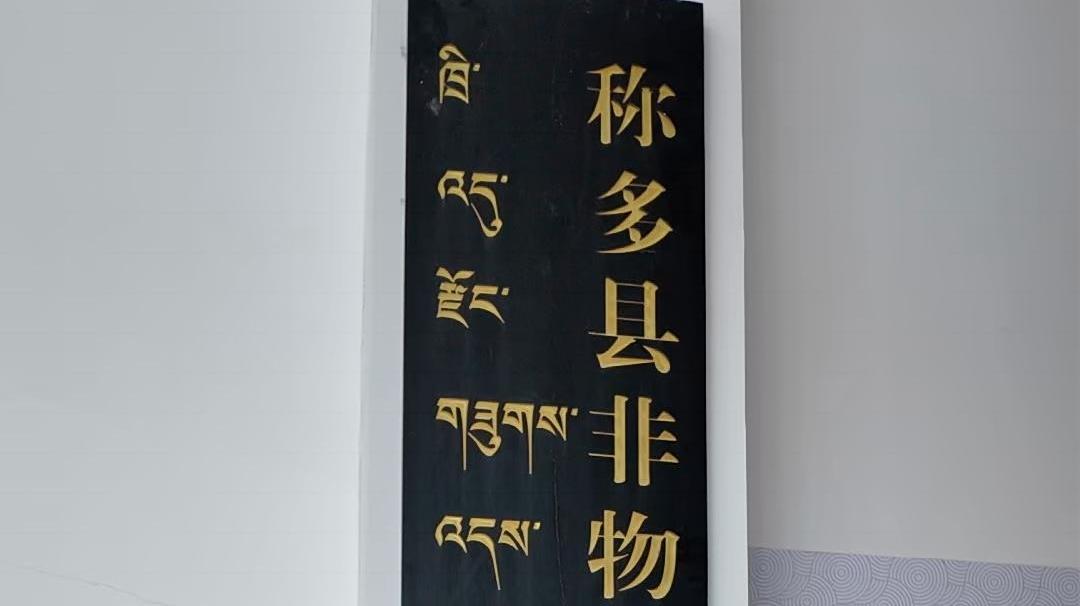 ཁྲི་འདུ་རྫོང་གཟུགས་འདས་
称多县非物